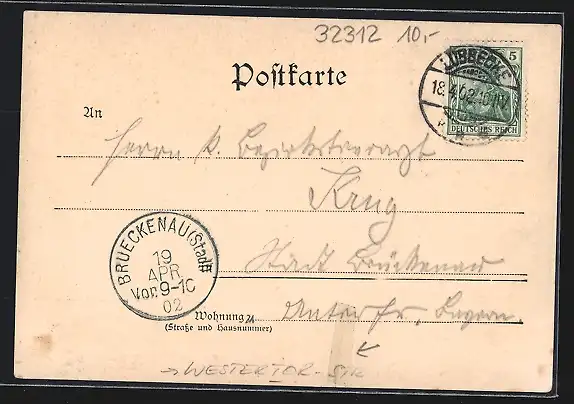 32312 10,-
5
LÜBBECKE
18.4.02.
DEUTSCHES REICH
Postkarte
An
Herrn k. Bezirkstierarzt
Krug
Stadt Brückenau
Unterfr. Bayern.
BRUECKENAU (Stadt)
19
APR
Vor. 9-10
02
Wohnung
(Straße und Hausnummer)
→ WESTERTOR-STR